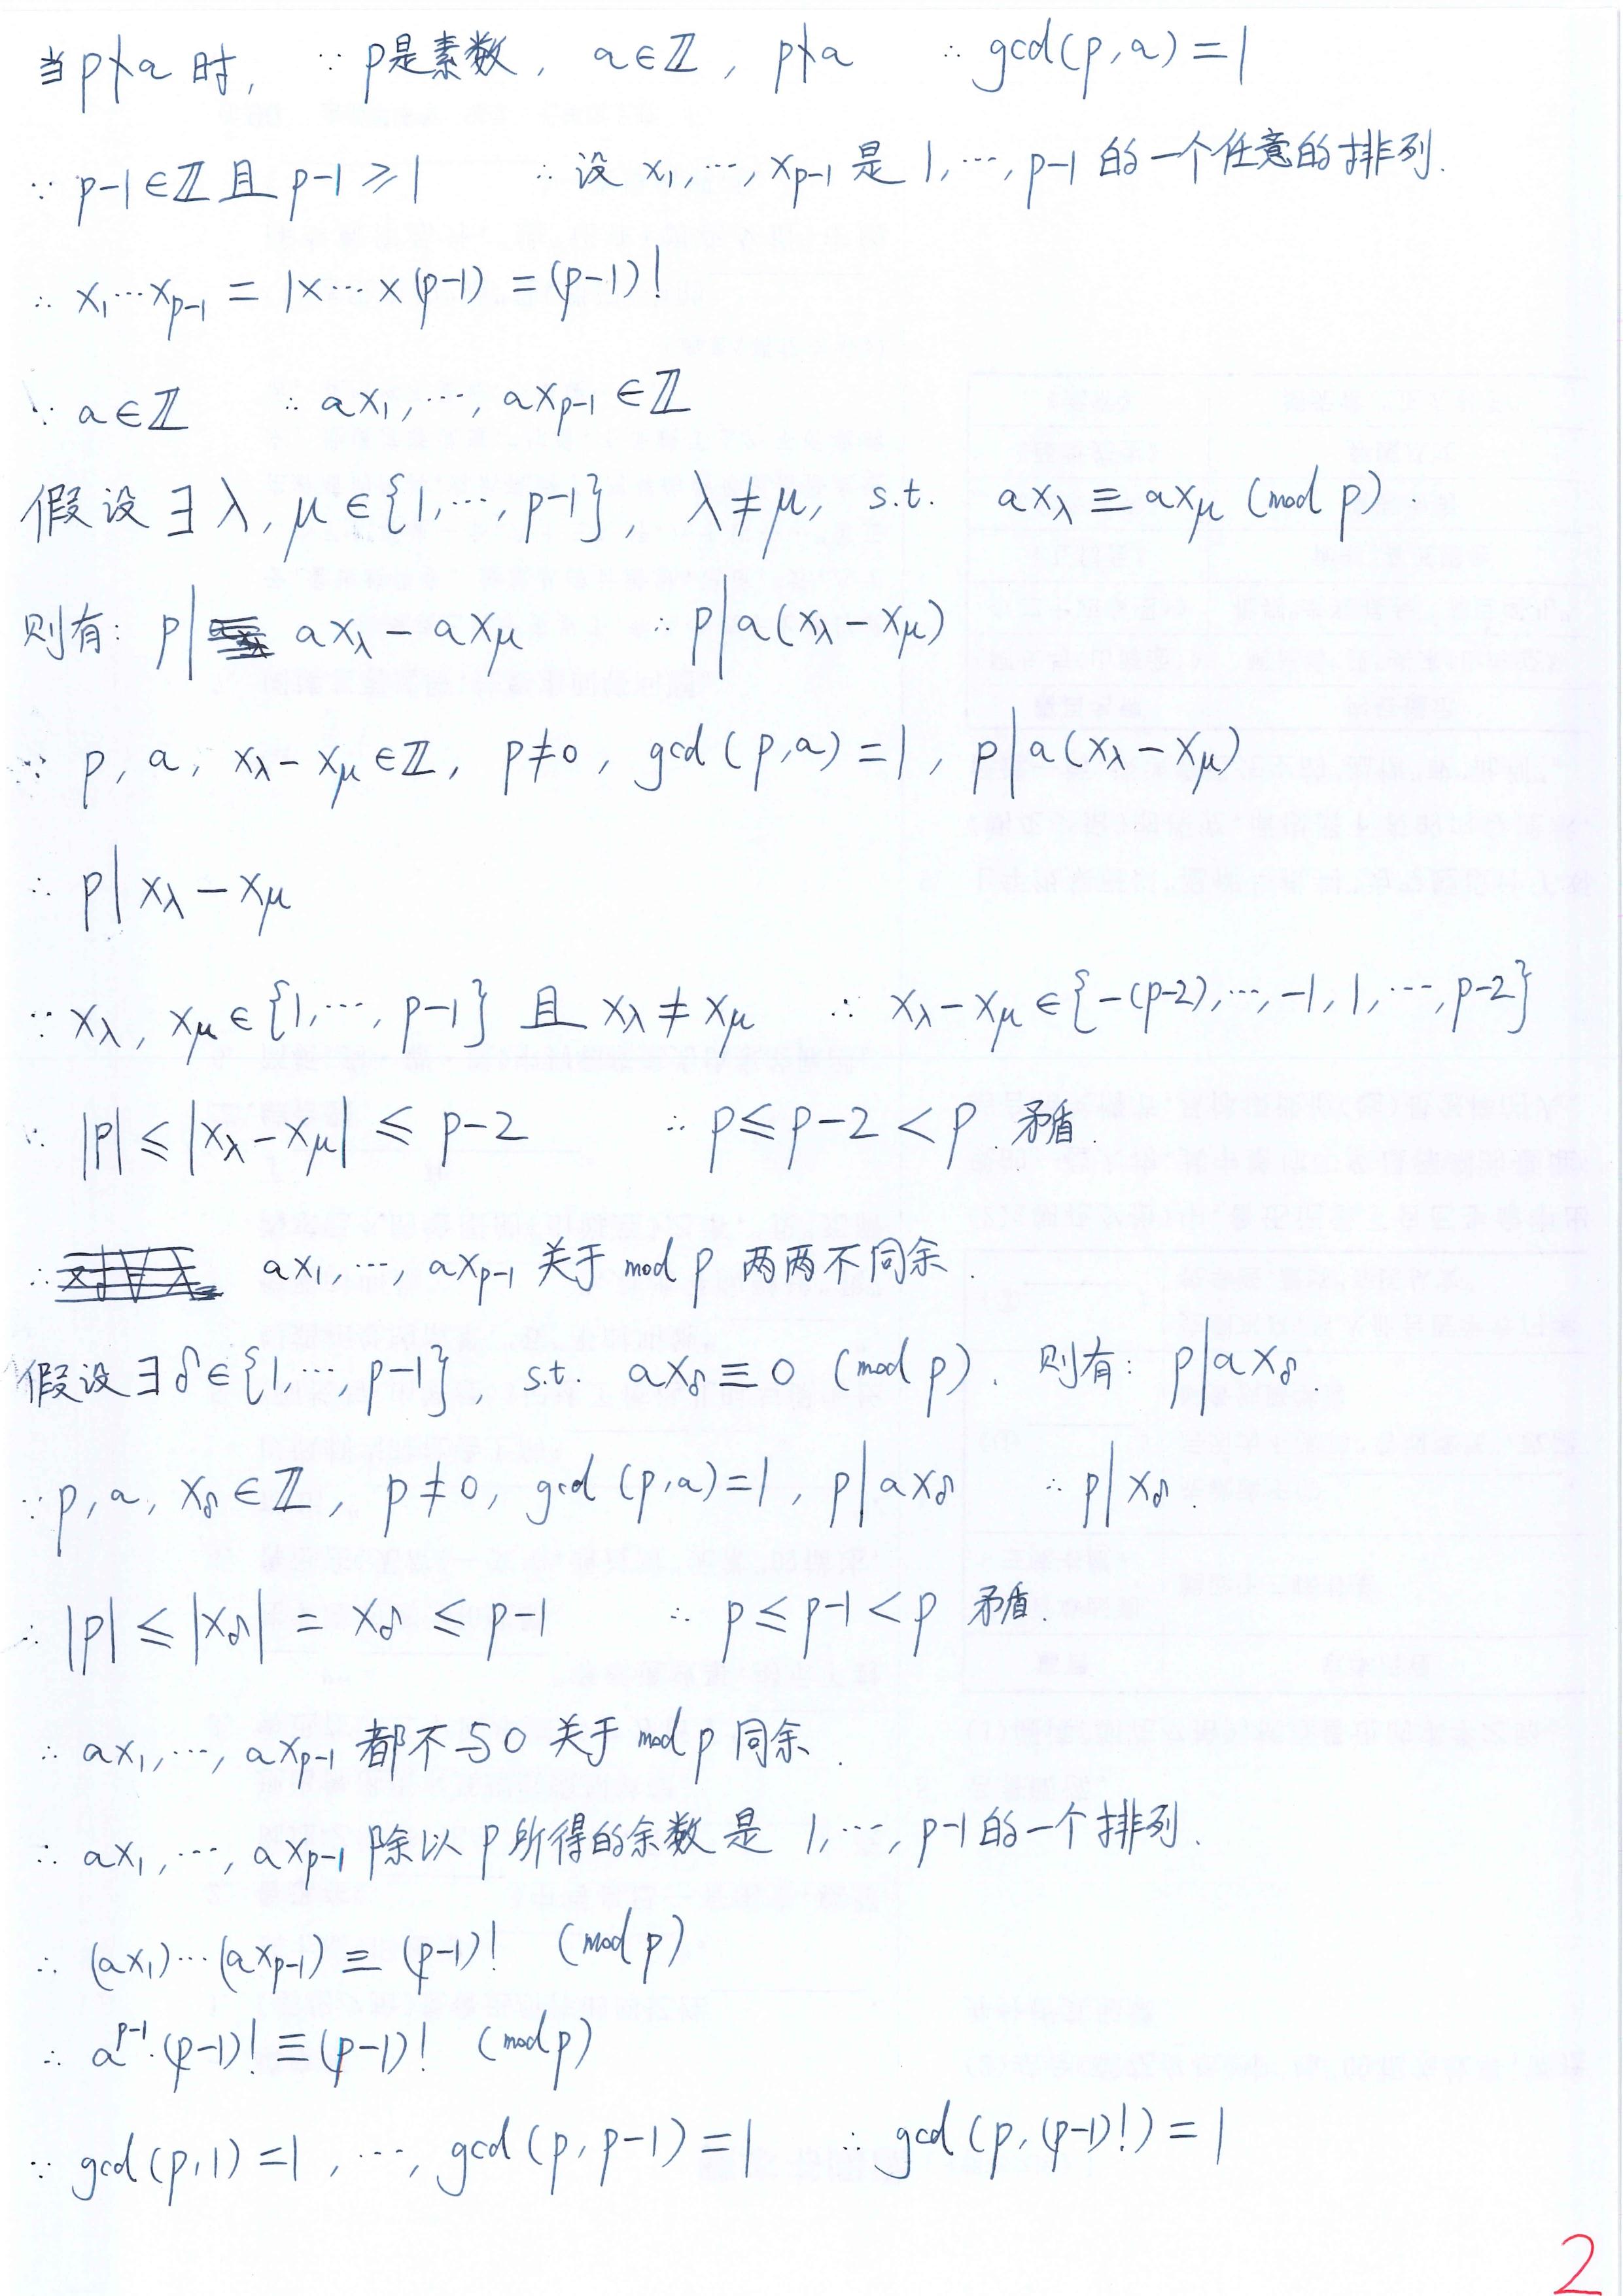 当p∤a 时, ∵ p是素数, a∈ℤ, p∤a ∴ gcd(p,a)=1
∵ p-1∈ℤ且 p-1≥1 ∴ 设 x₁,⋯,xₚ₋₁ 是 1,⋯,p-1 的一个任意的排列.
∴ x₁⋯xₚ₋₁ = 1×⋯×(p-1) = (p-1)!
∵ a∈ℤ ∴ ax₁,⋯,axₚ₋₁∈ℤ
假设∃λ,μ∈{1,⋯,p-1}, λ≠μ, s.t. ax_λ≡ax_μ (mod p).
则有: p| ax_λ-ax_μ ∴ p|a(x_λ-x_μ)
∵ p, a, x_λ-x_μ∈ℤ, p≠0, gcd(p,a)=1, p|a(x_λ-x_μ)
∴ p|x_λ-x_μ
∵ x_λ, x_μ∈{1,⋯,p-1} 且 x_λ≠x_μ ∴ x_λ-x_μ∈{-(p-2),⋯,-1,1,⋯,p-2}
∴ |p|≤|x_λ-x_μ|≤p-2 ∴ p≤p-2<p 矛盾.
∴ ax₁,⋯,axₚ₋₁ 关于 mod p 两两不同余.
假设∃δ∈{1,⋯,p-1}, s.t. ax_δ≡0 (mod p). 则有: p|ax_δ.
∵ p, a, x_δ∈ℤ, p≠0, gcd(p,a)=1, p|ax_δ ∴ p|x_δ.
∴ |p|≤|x_δ|=x_δ≤p-1 ∴ p≤p-1<p 矛盾.
∴ ax₁,⋯,axₚ₋₁ 都不与0 关于 mod p 同余.
∴ ax₁,⋯,axₚ₋₁ 除以 p 所得的余数是 1,⋯,p-1的一个排列.
∴ (ax₁)⋯(axₚ₋₁)≡(p-1)! (mod p)
∴ aᵖ⁻¹·(p-1)!≡(p-1)! (mod p)
∵ gcd(p,1)=1, ⋯, gcd(p,p-1)=1 ∴ gcd(p,(p-1)!)=1
2